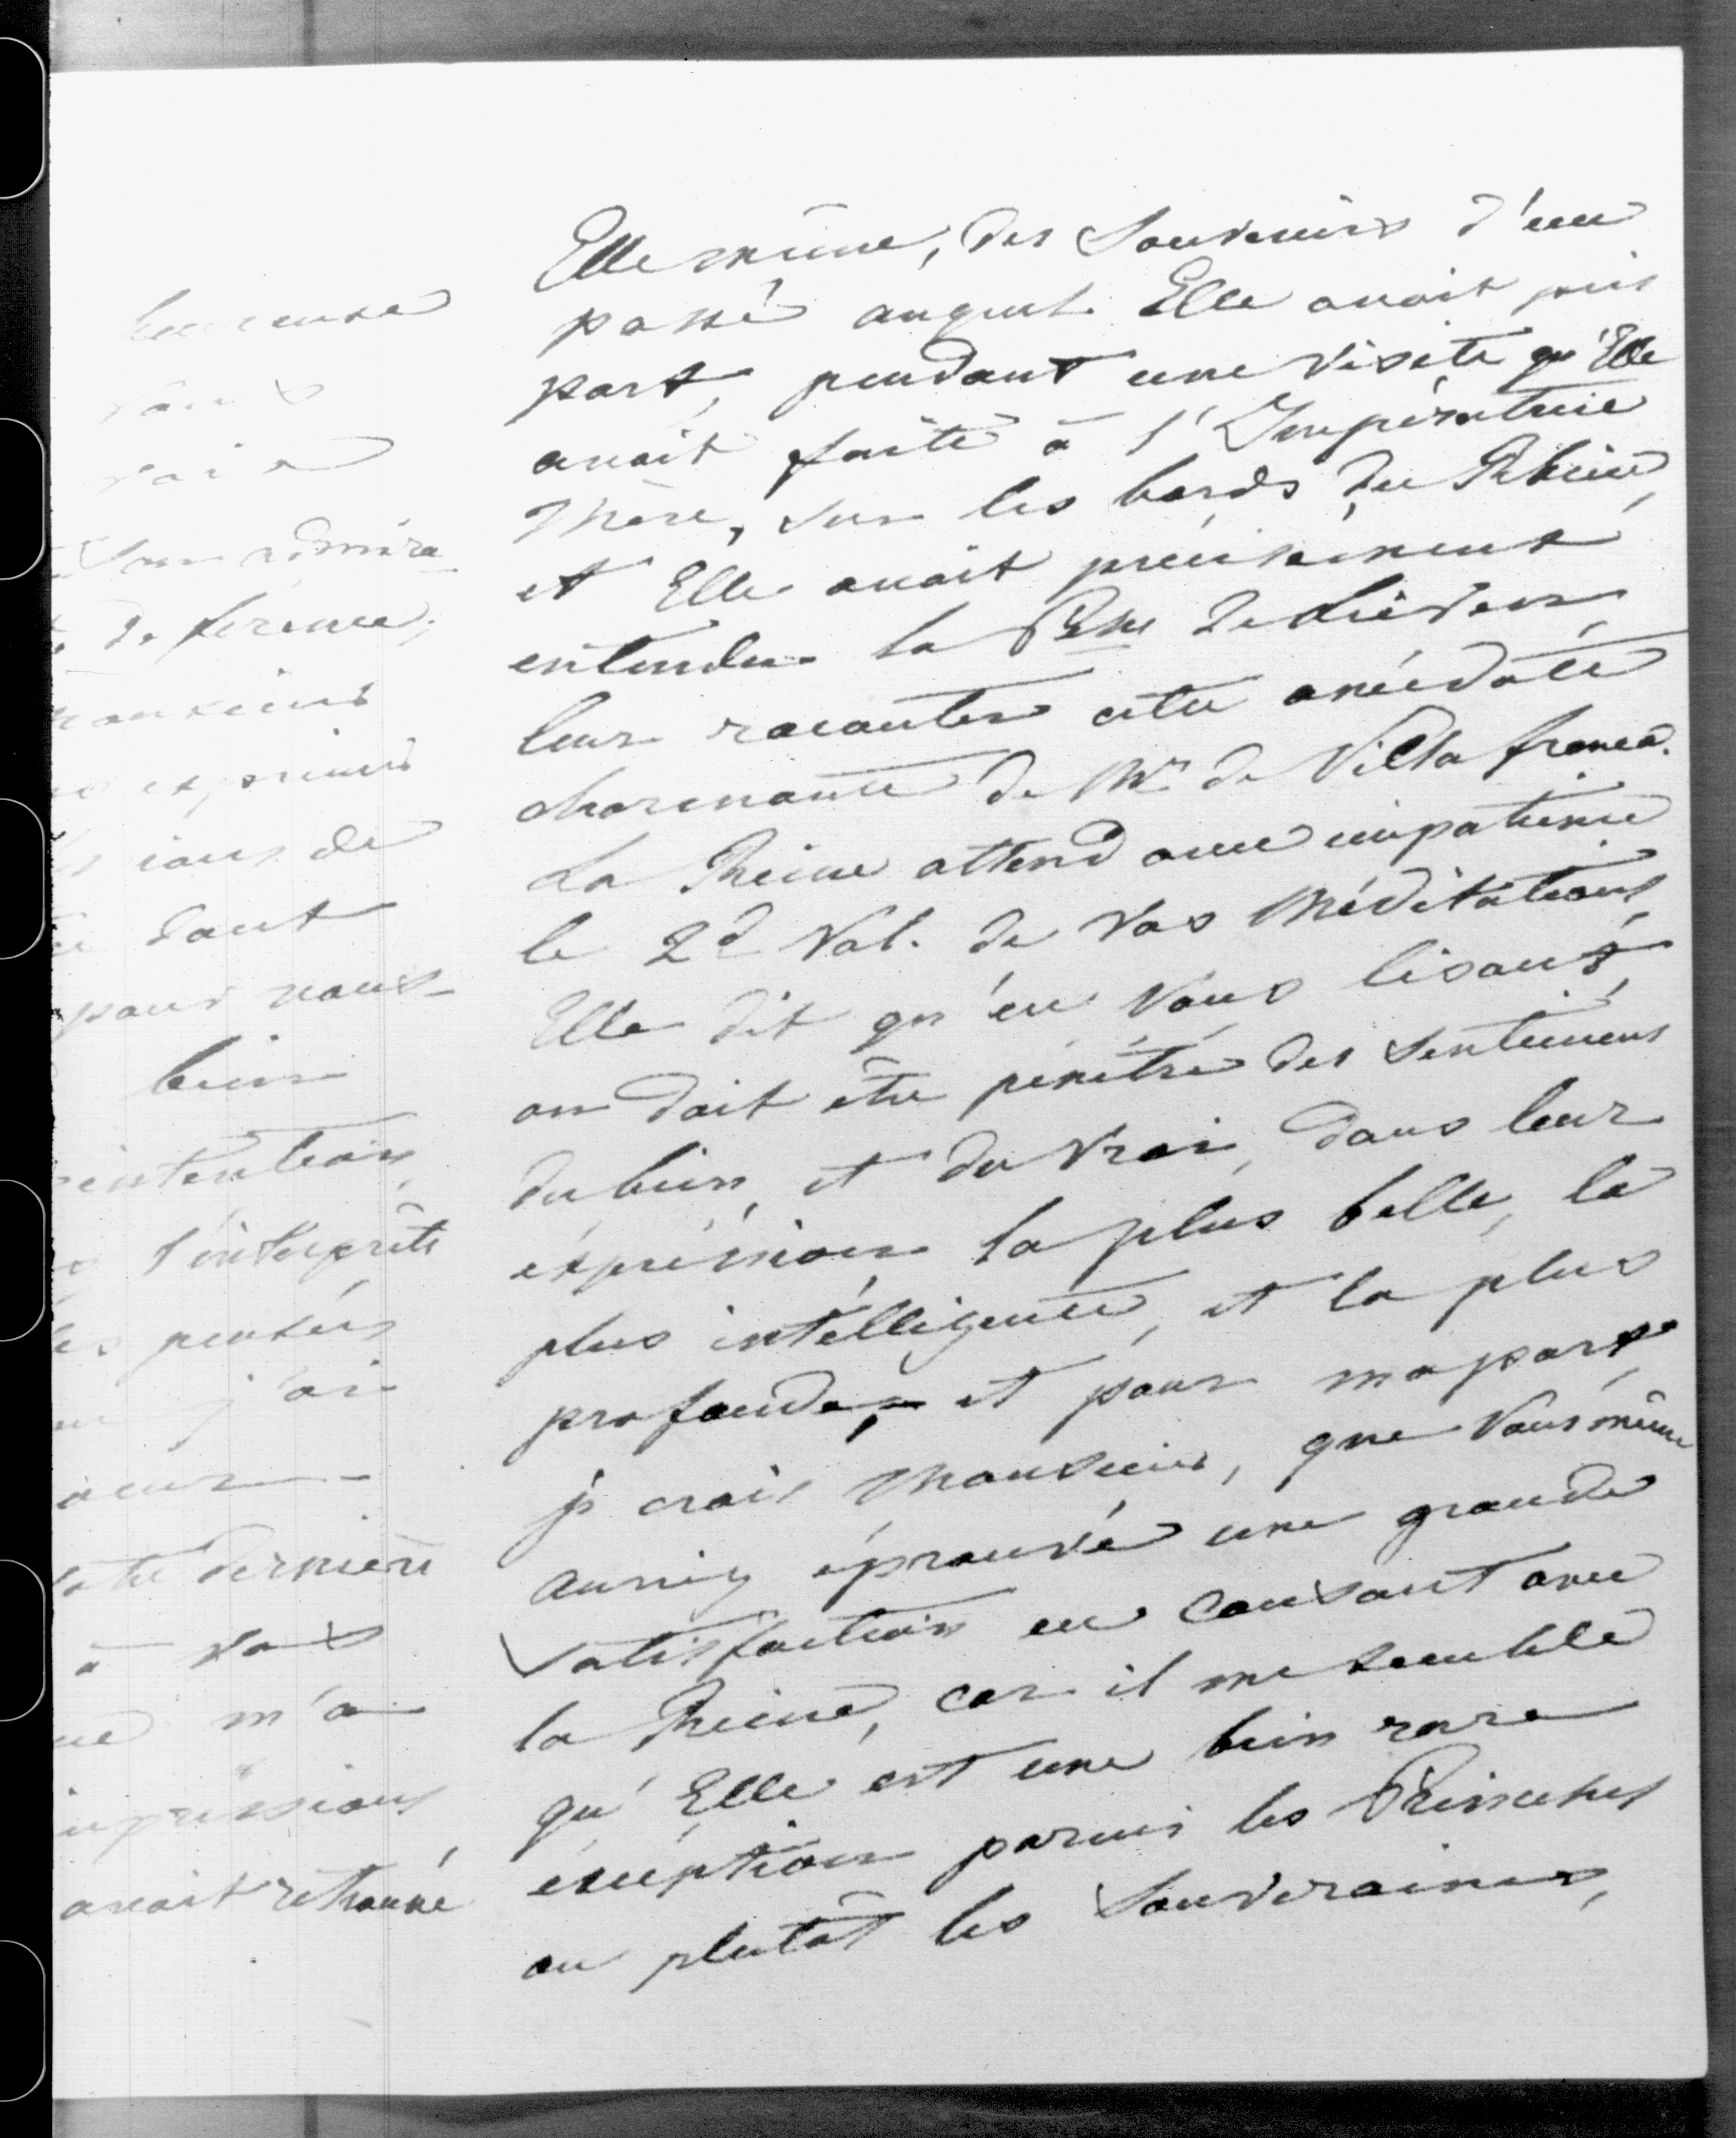 heureuse
son admira-
déférence,
Monsieur
exprimer
dont
pour nous-
bien
intention,
l'interprète
pensées
j'ai
votre dernière
à vos
m'a
impressions
avait retrouvé
Elle même, des Souvenirs d'un
passé auquel Elle avait pris
part, pendant une visite qu'Elle
avait faite à l'Impératrice
Mère, sur les bords du Rhin,
et Elle avait précisément
entendu la Psse de Liéven,
leur raconter cette anécdote
charmante de Mr de Villafranca.
La Reine attend avec impatience
le 2d Vol. de Vos Méditations,
Elle dit qu'en Vous lisant,
on doit être pénétré des sentimens
du bien, et du vrai, dans leur
expréssion la plus belle, la
plus intélligente, et la plus
profonde, - et pour ma part,
je crois Monsieur, que Vous même
auriez éprouvé une grande
satisfaction en causant avec
la Reine, car il me semble
qu'Elle est une bien rare
éxception parmi les Princesses
ou plutôt les Souveraines,